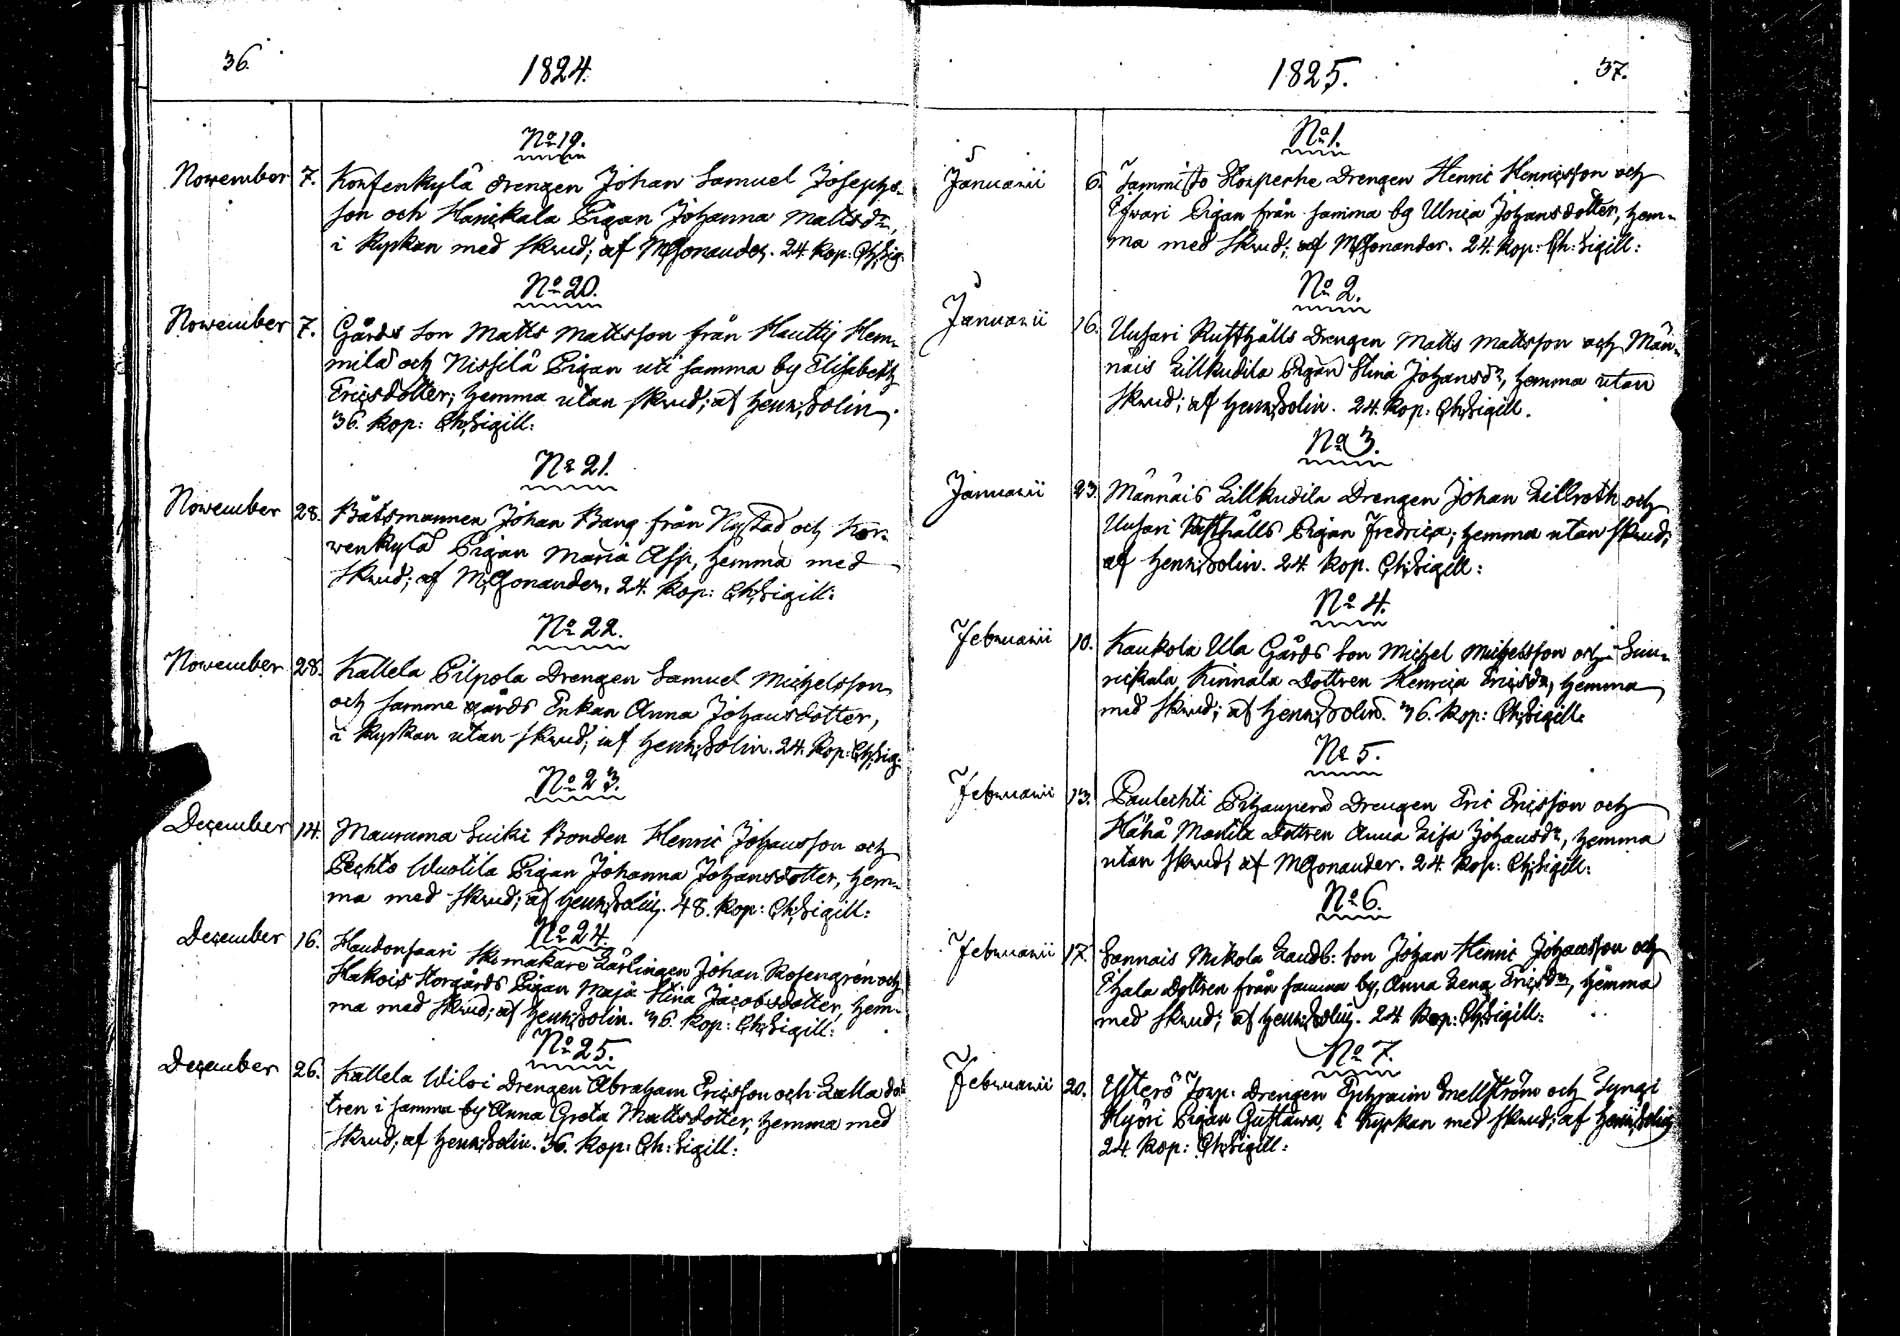 36.
1824.
No 19.
November 7. Korfenkylä drengen Johan Samuel Josephs-
son och Hanickala Pigan Johanna Mattsdr,
i Kyrkan med skrud; af M Gonander. 24. kop: Ch: Sig:
No 20.
November 7. Gårds Son Matts Mattsson från Hauttij Hem-
milä och Nissilä Pigan uti samma by Elisabeth
Ericsdotter; hemma utan skrud; af Henr: Solin.
36. kop: Ch: Sigill:
No 21.
November 28. Båtsmannen Johan Bang från Nystad och Kor-
wenkylä Pigan Maria Asp, hemma med
skrud; af M Gonander. 24. kop: Ch: Sigill:
No 22.
November 28. Kallela Pilpola Drengen Samuel Michelsson
och samme gårds Enkan Anna Johansdotter,
i Kyrkan utan skrud; af Henr: Solin. 24. kop: Ch: Sig:
No 23.
December 14. Mauruma Suiki Bonden Henric Johansson och
Pechto Wuotila Pigan Johanna Johansdotter, hem-
ma med skrud; af Henr: Solin. 48. kop: Ch: Sigill:
No 24.
December 16. Haudonsaari Skomakare Lärlingen Johan Rosengrén och
Hakois Storgårds Pigan Maja Stina Jacobsdotter, hem-
ma med skrud; af Henr: Solin. 36. kop: Ch: Sigill:
No 25.
December 26. Kallela Wilvi Drengen Abraham Ericsson och Lalla dot
tren i samma by Anna Greta Mattsdotter, hemma med
skrud; af Henr: Solin. 36. kop: Ch: Sigill:
1825.
37.
No 1.
Januarii 6. Tammisto Drengen Henric Henricsson och
Pigan från samma by Ulrica Johansdotter, hem-
ma med skrud; af M Gonander. 24. kop: Ch: Sigill:
No 2.
Januarii 16. Uusari Rusthålls Drengen Matts Mattsson och Män-
näis Lillkudila Pigan Stina Johansdr, hemma utan
skrud; af Henr: Solin. 24. kop: Ch: Sigill.
No 3.
Januarii 23. Männäis Lillkudila Drengen Johan Lillroth och
Uusari Rusthålls Pigan Fredrica; hemma utan skrud;
af Henr: Solin. 24. kop. Ch: Sigill:
No 4.
Februarii 10. Kaukola Ula Gårds Son Michel Michelsson och Sun-
rickala Kinnala Dottren Henrica Ericsdr, hemma
med skrud; af Henr: Solin. 36. kop: Ch: Sigill:
No 5.
Februarii 13. Paulechti Drengen Eric Ericsson och
Hähä Mantila Dottren Anna Lisa Johansdr, hemma
utan skrud; af M Gonander. 24. kop: Ch: Sigill:
No 6.
Februarii 17. Sannais Mikola Landb: Son Johan Henric Johansson och
Ehala Dottren från samma by, Anna Lena Ericsdr, hemma
med skrud; af Henr: Solin. 24. kop: Ch: Sigill:
No 7.
Februarii 20. Ysterö Torp: Drengen Ephraim Snellström och
Pigan Gustawa, i Kyrkan med skrud; af Henr: Solin
24. kop: Ch: Sigill: